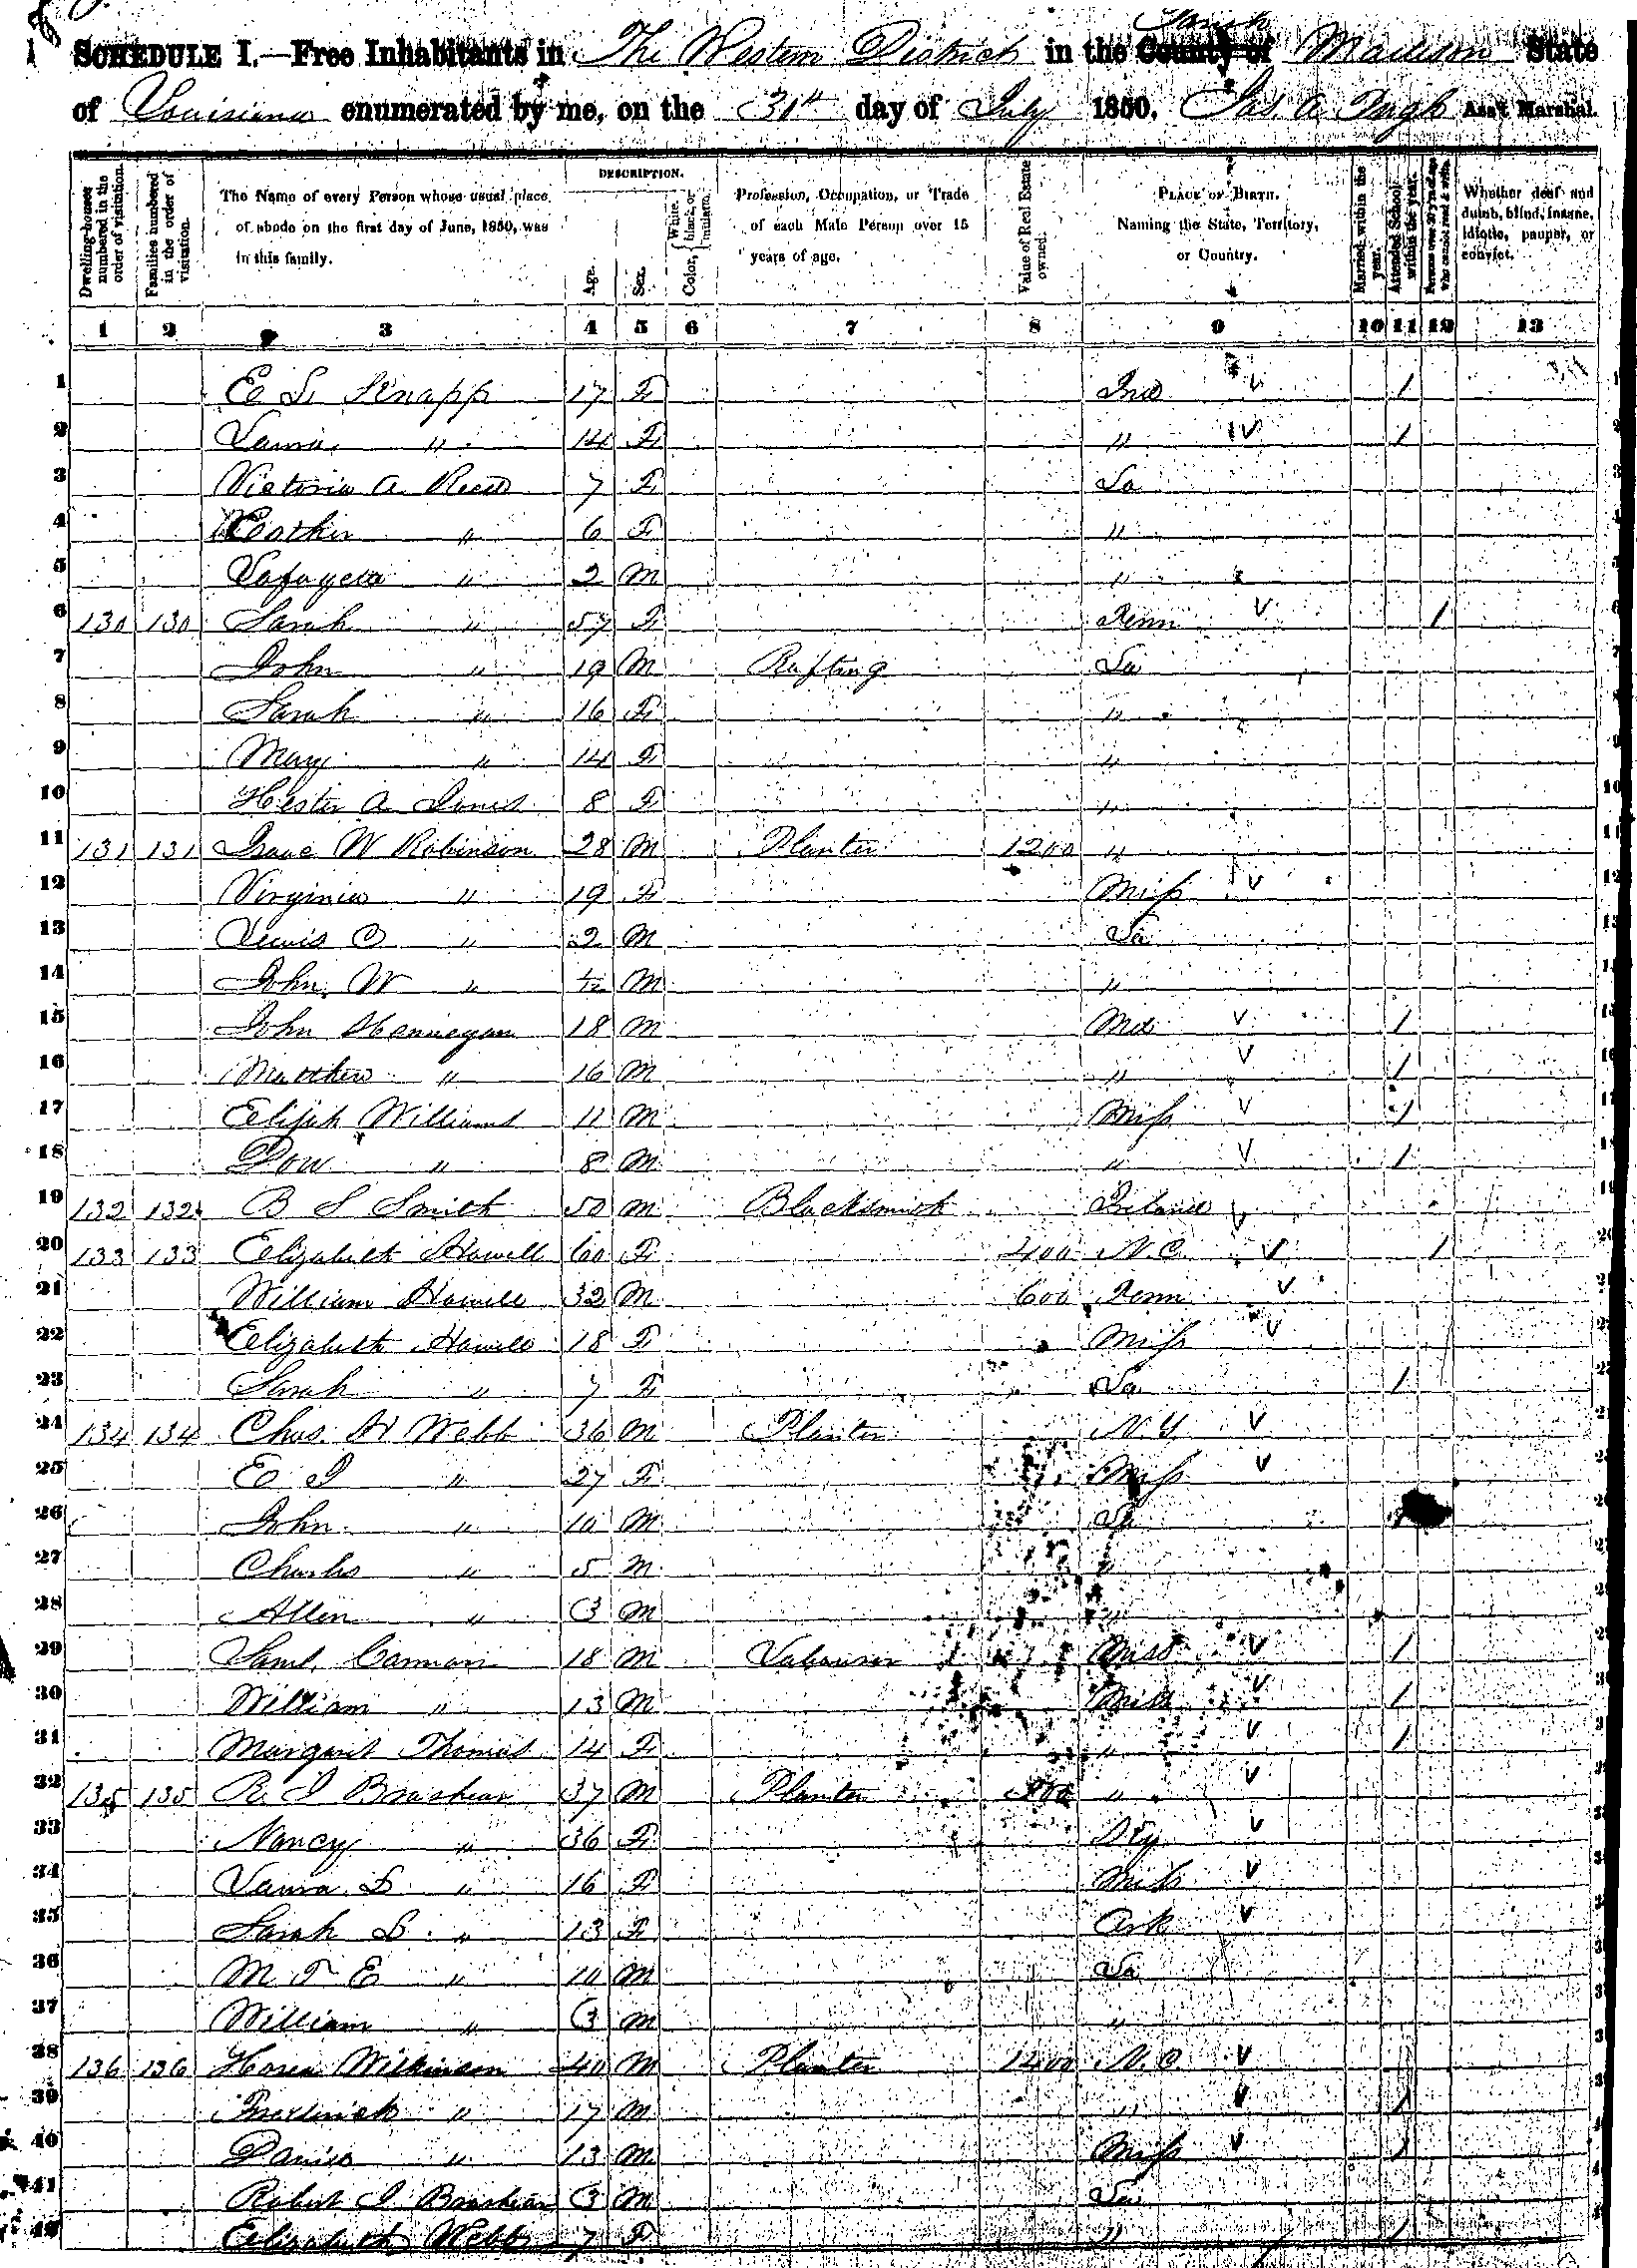 SCHEDULE I.—Free Inhabitants in The Western District in the County of Parish Madison State
of Louisiana enumerated by me, on the 31st day of July 1850. Jas. A. Pugh Ass't Marshal.
Dwelling-houses numbered in the order of visitation.
Families numbered in the order of visitation.
The Name of every Person whose usual place of abode on the first day of June, 1850, was in this family.
DESCRIPTION.
Age.
Sex.
Color, { White, black, or mulatto.
Profession, Occupation, or Trade of each Male Person over 15 years of age.
Value of Real Estate owned.
PLACE OF BIRTH. Naming the State, Territory, or Country.
Married within the year.
Attended School within the year.
Persons over 20 y'rs of age who cannot read & write.
Whether deaf and dumb, blind, insane, idiotic, pauper, or convict.
1 2 3 4 5 6 7 8 9 10 11 12 13
1 E L Knapp 17 F Ind 1
2 Laura " 14 F " 1
3 Victoria A Reed 7 F La
4 Esther " 6 F "
5 Lafayette " 2 M "
6 130 130 Sarah " 57 F Tenn 1
7 John " 19 M Rafting La
8 Sarah " 16 F "
9 Mary " 14 F "
10 Hester A Jones 8 F "
11 131 131 Isaac W Robinson 28 M Planter 1200 "
12 Virginia " 19 F Miss
13 Lewis O " 2 M La
14 John W " M "
15 John Hannegan 18 M Md 1
16 Matthew " 16 M " 1
17 Elijah Williams 11 M Miss 1
18 Dow " 8 M " 1
19 132 132 B S Smith 50 M Blacksmith Ireland
20 133 133 Elizabeth Howell 60 F 400 N.C. 1
21 William Howell 32 M 600 Tenn
22 Elizabeth Howell 18 F Miss
23 Sarah " 7 F La 1
24 134 134 Chas. H Webb 36 M Planter N.Y
25 E J " 27 F Miss
26 John " 10 M La 1
27 Charles " 5 M "
28 Allen " 3 M "
29 Saml. Cannon 18 M Labourer Miss 1
30 William " 13 M Miss 1
31 Margaret Thomas 14 F " 1
32 135 135 R. J Brashear 37 M Planter "
33 Nancy " 36 F Ky
34 Laura L " 16 F Miss
35 Sarah L " 13 F Ark
36 M T E " 10 M La
37 William " 3 M "
38 136 136 Hosea Wilkinson 40 M Planter N.C.
39 Frederick " 17 M " 1
40 Daniel " 13 M Miss 1
41 Robert J Brashear 3 M La
42 Elizabeth Webb 7 F " 1